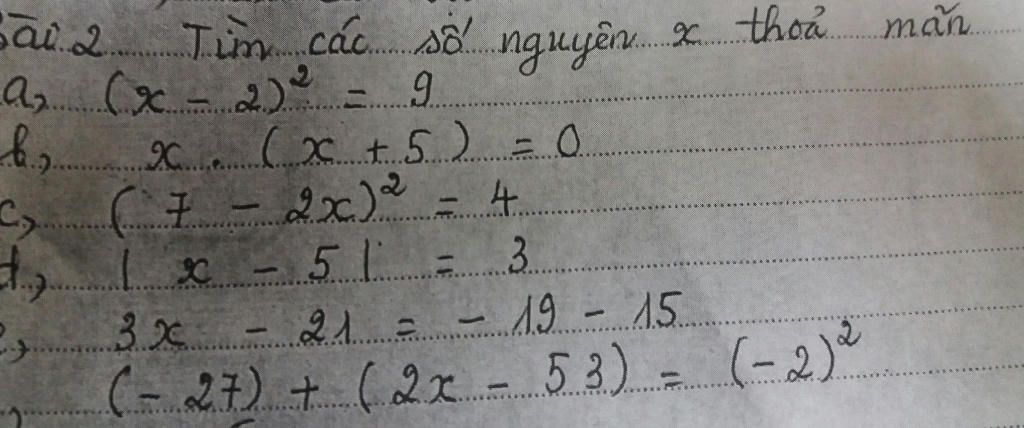 Bài 2 Tìm các số nguyên x thoả mãn
a, (x - 2)² = 9
b, x . (x + 5) = 0
c, (7 - 2x)² = 4
d, | x - 5 | = 3
e, 3x - 21 = - 19 - 15
(- 27) + (2x - 53) = (-2)²